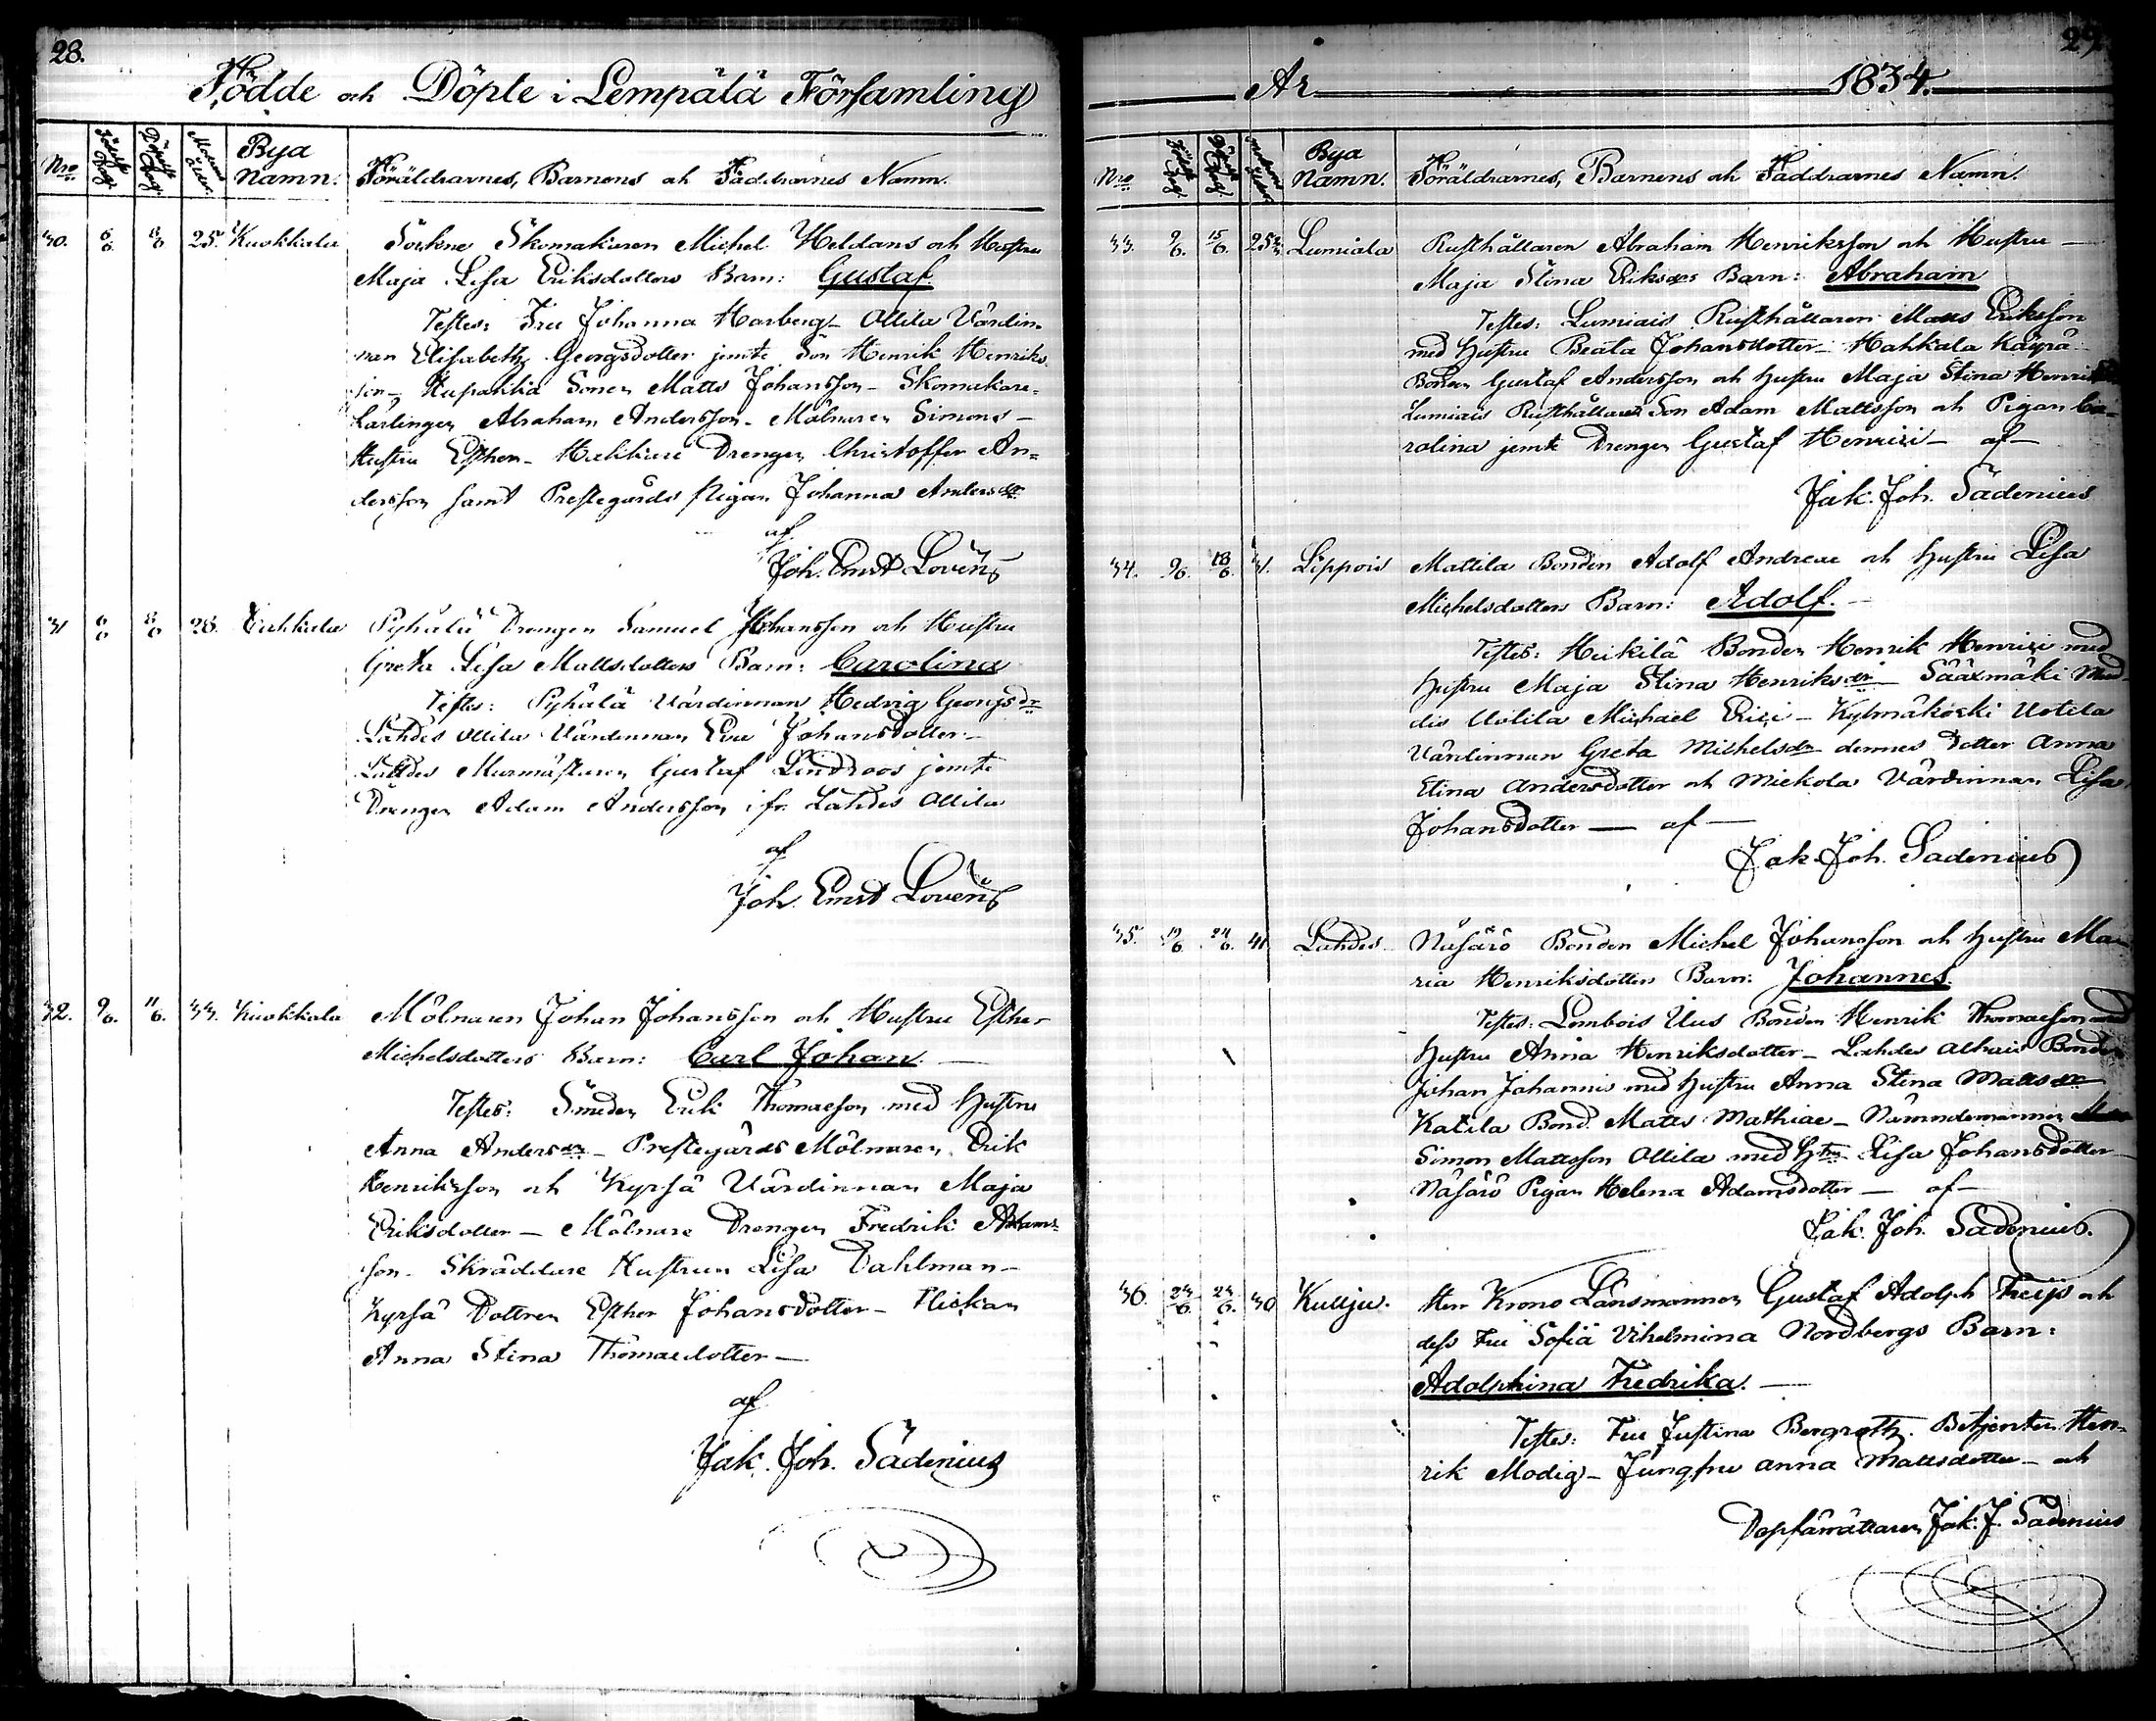 28.
Födde och Döpte i Lempälä Församling
Nro Födelse Dag. Döpelse Dag. Modrens Ålder. Bya Namn. Föräldrarnes, Barnens och Faddrarnes Namn.
30. 6/6. 8/6 25. Kuokkala Sockne Skomakaren Michel Heldans och Hustru
Maja Lisa Eriksdotters Barn: Gustaf.
Testes: Fru Johanna Harberg – Ollila Värdin-
nan Elisabeth Georgsdotter jemte Son Henrik Henriks-
son – Sonen Matts Johansson – Skomakare-
Lärlingen Abraham Andersson – Mölnaren Simons –
Hustru Esther – Drengen Christoffer An=
dersson samt Prestegårds Pigan Johanna Andersdr
af
Joh. Ernst Lovén
31 6/6 8/6 28. Pyhälä Drengen Samuel Johansson och Hustru
Greta Lisa Mattsdotters Barn: Carolina
Testes: Pyhälä Värdinnan Hedvig Georgsdr
Lahdes Ollila Värdinnan Eva Johansdotter –
Lahdes Murmästaren Gustaf Lindroos jemte
Drengen Adam Andersson ifr. Lahdes Ollila
af
Joh. Ernst Lovén
32. 9/6. 11/6. 33. Kuokkala Mölnaren Johan Johansson och Hustru Esther
Michelsdotters Barn: Carl Johan. –
Testes: Smeden Erik Thomasson med Hustru
Anna Andersdr – Prestegårds Mölnaren Erik
Henriksson och Kyrsä Värdinnan Maja
Eriksdotter – Mölnare Drengen Fredrik Adams-
son – Skräddare Hustrun Lisa Dahlman –
Kyrsä Dottren Esther Johansdotter – Flickan
Anna Stina Thomasdotter –
af
Jak. Joh. Sadenius
29.
År 1834.
Nro Födelse Dag Döpelse Dag Modrens Ålder Bya Namn. Föräldrarnes, Barnens och Faddrarnes Namn.
33. 9/6. 15/6. Lumiala Rusthållaren Abraham Henriksson och Hustru –
Maja Stina Eriksdrs Barn: Abraham
Testes: Lumiais Rusthållaren Matts Eriksson
med Hustru Beata Johansdotter – Hahkala Käyrä
Bonden Gustaf Andersson och hustru Maja Stina
Lumiais Rusthållare Son Adam Mattsson och Pigan Ca-
rolina jemte Drengen Gustaf Henrici – af –
Jak. Joh. Sadenius
34. 9/6. 18/6. 31. Lippois Mattila Bonden Adolf Andreae och hustru Lisa
Michelsdotters Barn: Adolf. –
Testes: Heikilä Bonden Henrik Henrici med
hustru Maja Stina Henriksdr – Sääxmäki
Uotila Michael Erici – Kylmäkoski Uotila
Värdinnan Greta Michelsdr dennes dotter Anna
Stina Andersdotter och Mickola Värdinnan Lisa
Johansdotter – af –
Jak. Joh. Sadenius
35. 19/6. 24/6. 41. Lahdes Näsärö Bonden Michel Johansson och hustru Ma-
ria Henriksdotters Barn: Johannes.
Testes: Lembois Uus Bonden Henrik Thomasson med
hustru Anna Henriksdotter – Lahdes Bonden
Johan Johannis med hustru Anna Stina Mattsdr
Katila Bond. Matts Mathiae – Nämndemannen
Simon Mattsson Ollila med hstru Lisa Johansdotter
Näsärö Pigan Helena Adamsdotter – af –
Jak. Joh. Sadenius.
36. 23/6. 24/6. 30 Kulju. Herr Krono Länsmannen Gustaf Adolph Freijs och
dess Fru Sofia Vihelmina Nordbergs Barn:
Adolphina Fredrika. –
Testes: Fru Justina Bergroth. Betjenten Hen-
rik Modig – Jungfru Anna Mattsdotter – och
Dopförrättaren Jak. J. Sadenius